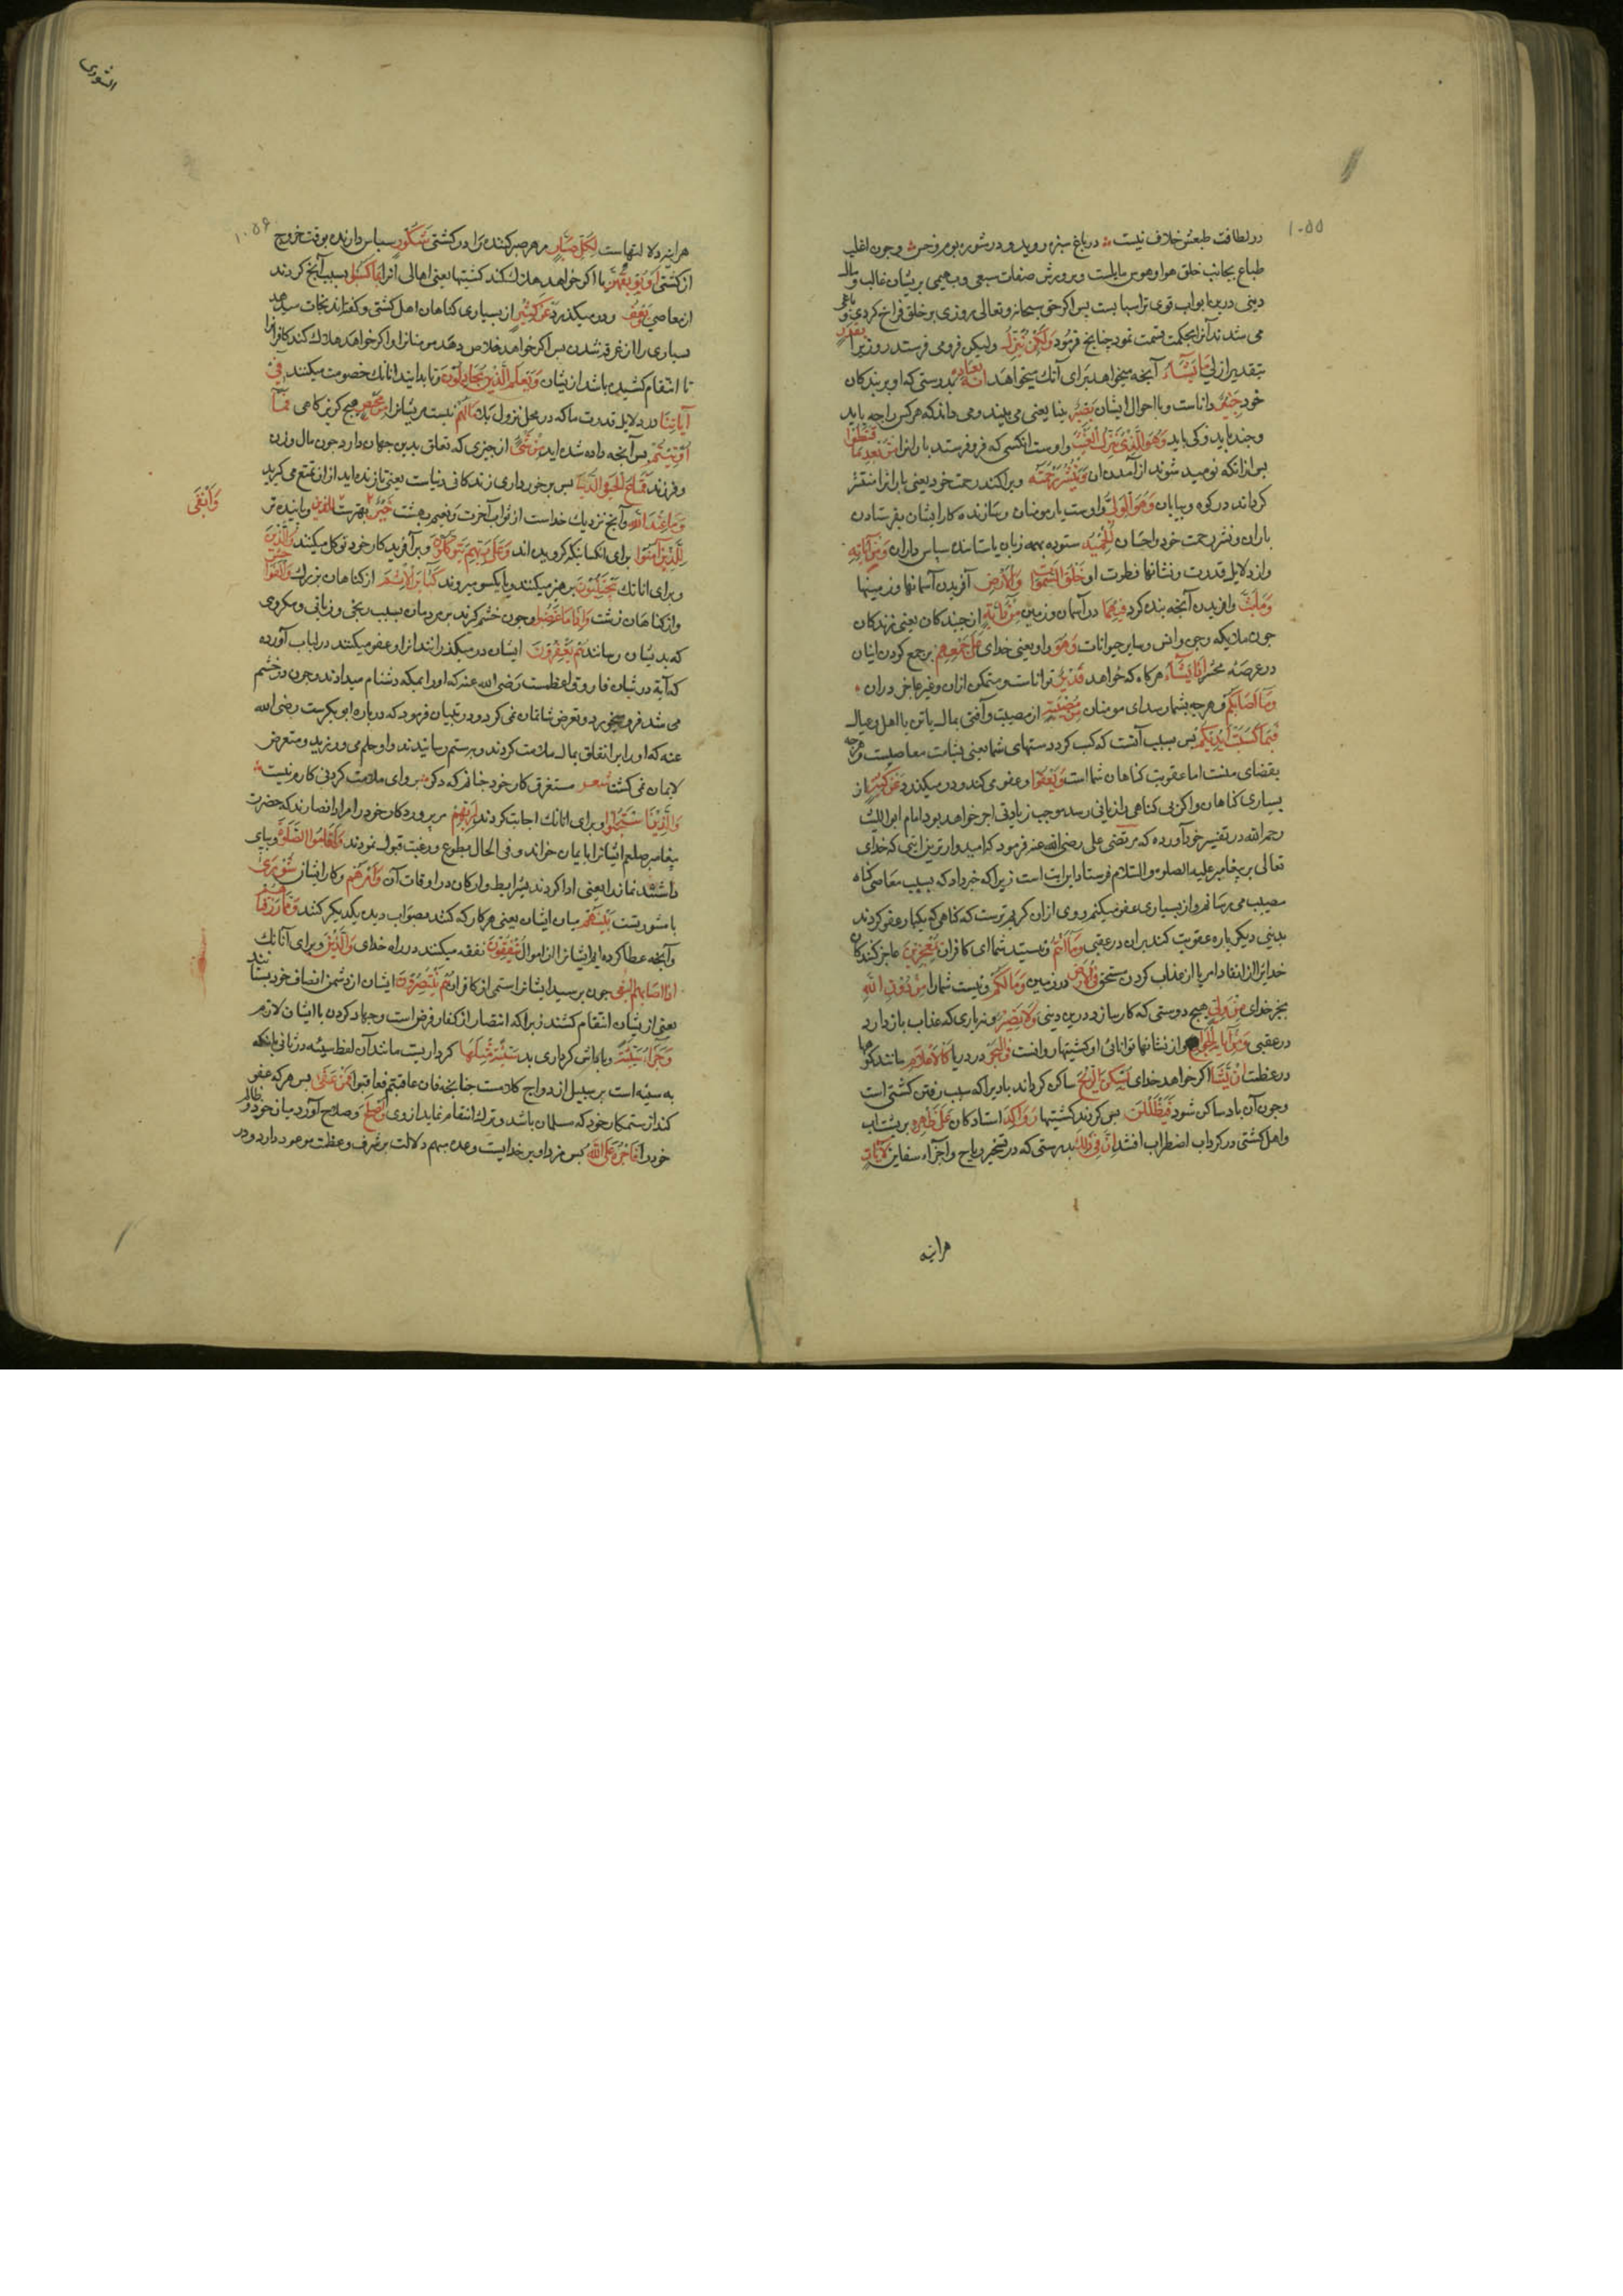 ۱۰۵۵
در لطافت طبعش خلاف نیست در باغ سبزه روید و در شوره بوم و خس و چون اغلب
طباع بجانب خلق هوا و هوس مایلست و پرورش صفات سبعی و بهیمی بریشان غالب و مال
دینی درین ابواب قوی تر اسبابست پس اگر حق سبحانه و تعالی روزی بر خلق فراخ کردی باغی و
می شدند آنرا بحکمت قسمت نمود چنانچه فرمود وَلٰكِنْ يُنَزِّلُ ولیکن فرو می فرستد روزی را بِقَدَرٍ
بتقدیر ازلی مَا يَشَاءُ آنچه میخواهد برای آنک میخواهد اِنَّهُ بِعِبَادِهِ بدرستی که او بر بندکان
خود خَبِيرٌ داناست و با احوال ایشان بَصِيرٌ بینا یعنی می بیند و می داند که هر کس را چه باید
و چند باید و کی باید وَهُوَ الَّذِي يُنَزِّلُ الْغَيْثَ و اوست انکسی که فرو فرستد باران را مِنْ بَعْدِ مَا قَنَطُوا
پس از انکه نومید شوند از آمدن ان وَيَنْشُرُ رَحْمَتَهُ و پراکند رحمت خود یعنی بارانرا منتشر
کرداند در کوه و بیابان وَهُوَ الْوَلِيُّ و اوست یار مومنان و سازنده کار ایشان بفرستادن
باران و نشر رحمت خود و احسان الْحَمِيدُ ستوده بهمه زبان یا ستاننده سپاس داران وَمِنْ آيَاتِهِ
و از دلایل قدرت و نشانها فطرت او خَلْقُ السَّمٰوَاتِ وَالْاَرْضِ آفریدن آسمانها و زمینها
وَمَا بَثَّ و افریدن آنچه پنده کرد فِيهِمَا در آسمان و زمین مِنْ دَابَّةٍ از جنبندکان یعنی زندکان
چون ملایکه و جن و انس و سایر حیوانات وَهُوَ و او یعنی خدای عَلٰى جَمْعِهِمْ بر جمع کردن ایشان
در عرصه محشر اِذَا يَشَاءُ هرکاه که خواهد قَدِيرٌ تواناست و متمکن ازان و غیر عاجز دران
وَمَا اَصَابَكُمْ و هرچه بشما رسد ای مومنان مِنْ مُصِيبَةٍ از مصیبت و آفتی بمال یا تن یا اهل و عیال
فَبِمَا كَسَبَتْ اَيْدِيكُمْ پس بسبب آنست که کسب کرد دستهای شما یعنی بشامت معاصیست هرچه
بقضای منست اما عقوبت کناهان شما است وَيَعْفُوا و عفو می کند و در میکذرد عَنْ كَثِيرٍ از
بسیاری کناهان و اکر بی کناهی را زیانی رسد موجب زیادتی اجر خواهد بود امام ابو اللیث
رحمه الله در تفسیر خود آورده که مرتضی علی رضی الله عنه فرمود که امیدوارترین ایتی که خدای
تعالی بر پیغامبر علیه الصلوة و السلام فرستاد این ایت است زیرا که خبر داد که بسبب معاصی کناه
مصیبت می رسانم و از بسیاری عفو میکنم و وی ازان کریم ترست که کناهی که یکبار عفو کردند
بدینی دیکر باره عقوبت کند بران در عقبی وَمَا اَنْتُمْ و نیستید شما ای کافران بِمُعْجِزِينَ عاجز کنندکان
خدایرا از انفاد امر یا از عذاب کردن مستحق فِي الْاَرْضِ در زمین وَمَا لَكُمْ و نیست شما را مِنْ دُونِ اللّٰهِ
بجز خدای مِنْ وَلِيٍّ هیچ دوستی که کار سازد در دینی وَلَا نَصِيرٍ و نه یاری که عذاب باز دارد
در عقبی وَمِنْ آيَاتِهِ الْجَوَارِ و از نشانها توانائی او کشتیهاء روانست فِي الْبَحْرِ در دریا كَالْاَعْلَامِ مانند کوهها
در عظمت اِنْ يَشَأْ اکر خواهد خدای يُسْكِنِ الرِّيحَ ساکن کرداند باد را که سبب رفتن کشتی است
و چون آن باد ساکن شود فَيَظْلَلْنَ پس کردند کشتیها رَوَاكِدَ استادکان عَلٰى ظَهْرِهِ بر پشت اب
و اهل کشتی در کرداب اضطراب افتند اِنَّ فِي ذٰلِكَ بدرستی که در تسخیر ریاح و اجراء سفاین لَآيَاتٍ
هراینه
الشوری
۱۰۵۶
هراینه دلالتهاست لِكُلِّ صَبَّارٍ مر هر صبر کننده را در کشتی شَكُورٍ سپاس دارنده بوقت خروج
از کشتی اَوْ يُوبِقْهُنَّ یا اکر خواهد هلاک کند کشتیها یعنی اهالی انرا بِمَا كَسَبُوا بسبب آنچ کردند
از معاصی وَيَعْفُ و در میکذرد عَنْ كَثِيرٍ از بسیاری کناهان اهل کشتی و کفته اند نجات میدهد
بسیاری را از غرقه شدن پس اکر خواهد خلاص دهد مومنانرا و اکر خواهد هلاک کند کافرانرا
تا انتقام کشیده باشد از یشان وَيَعْلَمَ الَّذِينَ يُجَادِلُونَ و تا بدانند انانک خصومت میکنند فِي
آيَاتِنَا در دلایل قدرت ما که در محل نزول بلا مَا لَهُمْ نیست مریشانرا مِنْ مَحِيصٍ هیچ کریزکاهی فَمَا
اُوتِيتُمْ پس آنچه داده شده اید مِنْ شَيْءٍ از چیزی که تعلق بدین جهان دارد چون مال و زن
و فرزند فَمَتَاعُ الْحَيٰوةِ الدُّنْيَا پس برخورداری زندکانی دنیاست یعنی تا زنده اید ازان تمتع می کیرید
وَمَا عِنْدَ اللّٰهِ و آنچ نزدیک خداست از ثواب آخرت و نعیم بهشت خَيْرٌ بهترست ازین و پاینده تر
وَاَبْقٰى
لِلَّذِينَ آمَنُوا برای انکسانیکه کرویده اند وَعَلٰى رَبِّهِمْ يَتَوَكَّلُونَ و برآفریدکار خود توکل میکنند وَالَّذِينَ
و برای انانک يَجْتَنِبُونَ پرهیز میکنند و یا یکسو میروند كَبَائِرَ الْاِثْمِ از کناهان بزرک وَالْفَوَاحِشَ
و از کناهان زشت وَاِذَا مَا غَضِبُوا و چون خشم کیرند بر مردمان بسبب رنجی و زیانی و مکروهی
که بدیشان رسانند هُمْ يَغْفِرُونَ ایشان در میکذرانند انرا و عفو میکنند در لباب آورده
که آیة در شان فاروق اعظمست رضی الله عنه که او را بمکه دشنام میدادند و چون در خشم
می شد فرو میخورد و تعرض شاتمان نمی کرد و در تبیان فرمود که درباره ابوبکرست رضی الله
عنه که او را بر انفاق بمال ملامت کردند و برستم رسانیدند و او حلم می ورزید و متعرض
لایمان نمی کشت شعر مستغرق کار خود چنانم که دکر پروای ملامت کردنی کارم نیست
وَالَّذِينَ اسْتَجَابُوا و برای انانک اجابت کردند لِرَبِّهِمْ مر پروردکار خود را مراد انصارند که حضرت
پیغامبر صلعم ایشانرا بایمان خواند و فی الحال بطوع و رغبت قبول نمودند وَاَقَامُوا الصَّلٰوةَ و بپای
داشتند نماز را یعنی ادا کردند بشرایط و ارکان در اوقات آن وَاَمْرُهُمْ و کار ایشان شُورٰى
با مشورتست بَيْنَهُمْ میان ایشان یعنی هر کار که کنند بصواب دید یکدیکر کنند وَمِمَّا رَزَقْنَاهُمْ
و آنچه عطا کرده ایم ایشانرا از اموال يُنْفِقُونَ نفقه میکنند در راه خدای وَالَّذِينَ و برای آنانک
اِذَا اَصَابَهُمُ الْبَغْيُ چون برسد ایشانرا ستمی از کافران هُمْ يَنْتَصِرُونَ ایشان از دشمن انصاف خود بستانند
یعنی از یشان انتقام کشند زیرا که انتصار از کفار فرض است و جهاد کردن با ایشان لازم
وَجَزَاءُ سَيِّئَةٍ و پاداش کرداری بد سَيِّئَةٌ مِثْلُهَا کرداریست مانند آن لفظ سیئه در ثانی بانکه
به سیئه است بر سبیل ازدواج کلامست چنانچه فان عاقبتم فعاقبوا فَمَنْ عَفَا پس هر که عفو
کند از ستمکار خود که مسلمان باشد و ترک انتقام نماید از وی وَاَصْلَحَ و صلاح آورد میان خود و ظالم
خود را فَاَجْرُهُ عَلَى اللّٰهِ پس مزد او بر خدایست وعده مبهم دلالت بر شرف و عظمت موعود دارد و در